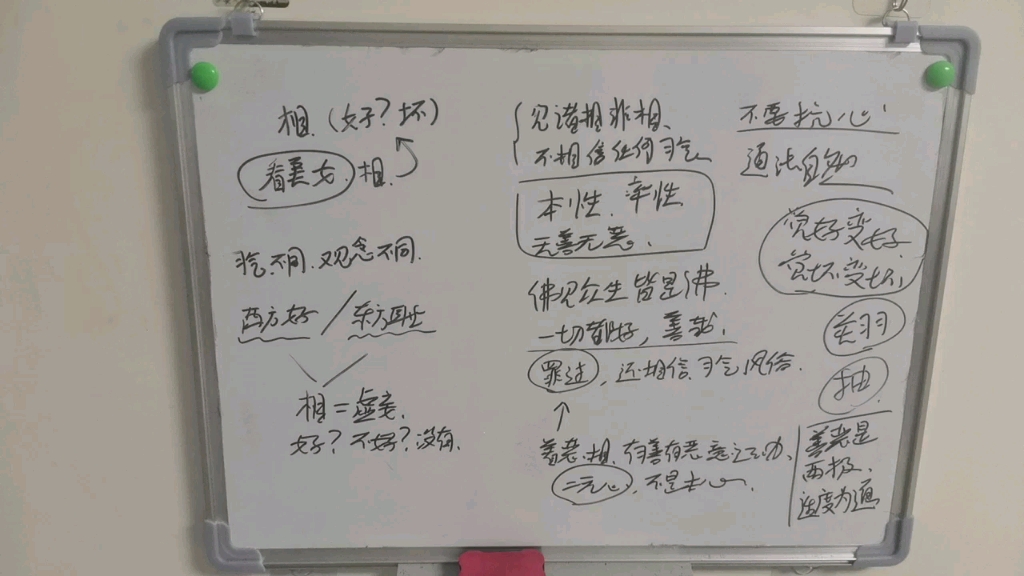 相（好？坏）
看美女 相
习气不同 观念不同
西方好 / 东方
相=虚妄
好？不好？没有
见诸相非相、
不相信任何习气
本性、率性
无善无恶、
佛见众生皆是佛
一切都好，善哉、
罪过，还相信习气风俗.
善恶、相、有善有恶
二元心，不是
不要抗心
通法自
觉好变好
觉坏变坏
关羽
抽
善恶是
两极、
适度为通